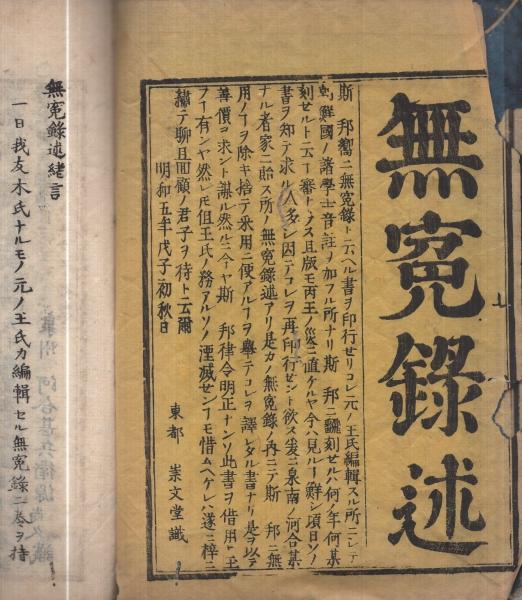 無冤錄述
斯邦嚮ニ無冤錄ト云ヘル書ヲ印行せリコレ元ノ王氏編輯スル所ニシテ
朝鮮國ノ諸學士音註ヲ加フル所ナリ斯邦ニ翻刻ゼルハ何ノ年何某
刻ゼルト云フ審ナラス且版モ丙王ノ災ニ直ケルヤ今ハ見ル丨鮮シ頃日ソノ
書ヲ知テ求ル人多シ因テコレヲ再印行ゼント欲ス爰ニ泉南ノ河合某
ナル者家ニ貽ス所ノ無冤錄述アリ是カノ無冤錄ノ內ニテ斯邦ニ無
用ノヿヲ除キ捨テ釆用ニ便アルヿヲ擧テコレヲ譯シタル書ナリ是ヲ以テ
善價ヲ求ント謀ル然ルニ今ヤ斯邦律令明正ナンソ此書ヲ借用ヒ
フヿ有ンヤ然レ𪜈但王氏ノ務アルソノ湮滅センヿモ惜ムヘケレハ遂ニ梓ニ
繡テ聊且回顧ノ君子ヲ待ト云爾
明和五年戊子初秋日
東都 崇文堂識
無冤錄述緒言
一日我友木氏ナルモノ元ノ王氏カ編輯セル無冤錄二卷ヲ持